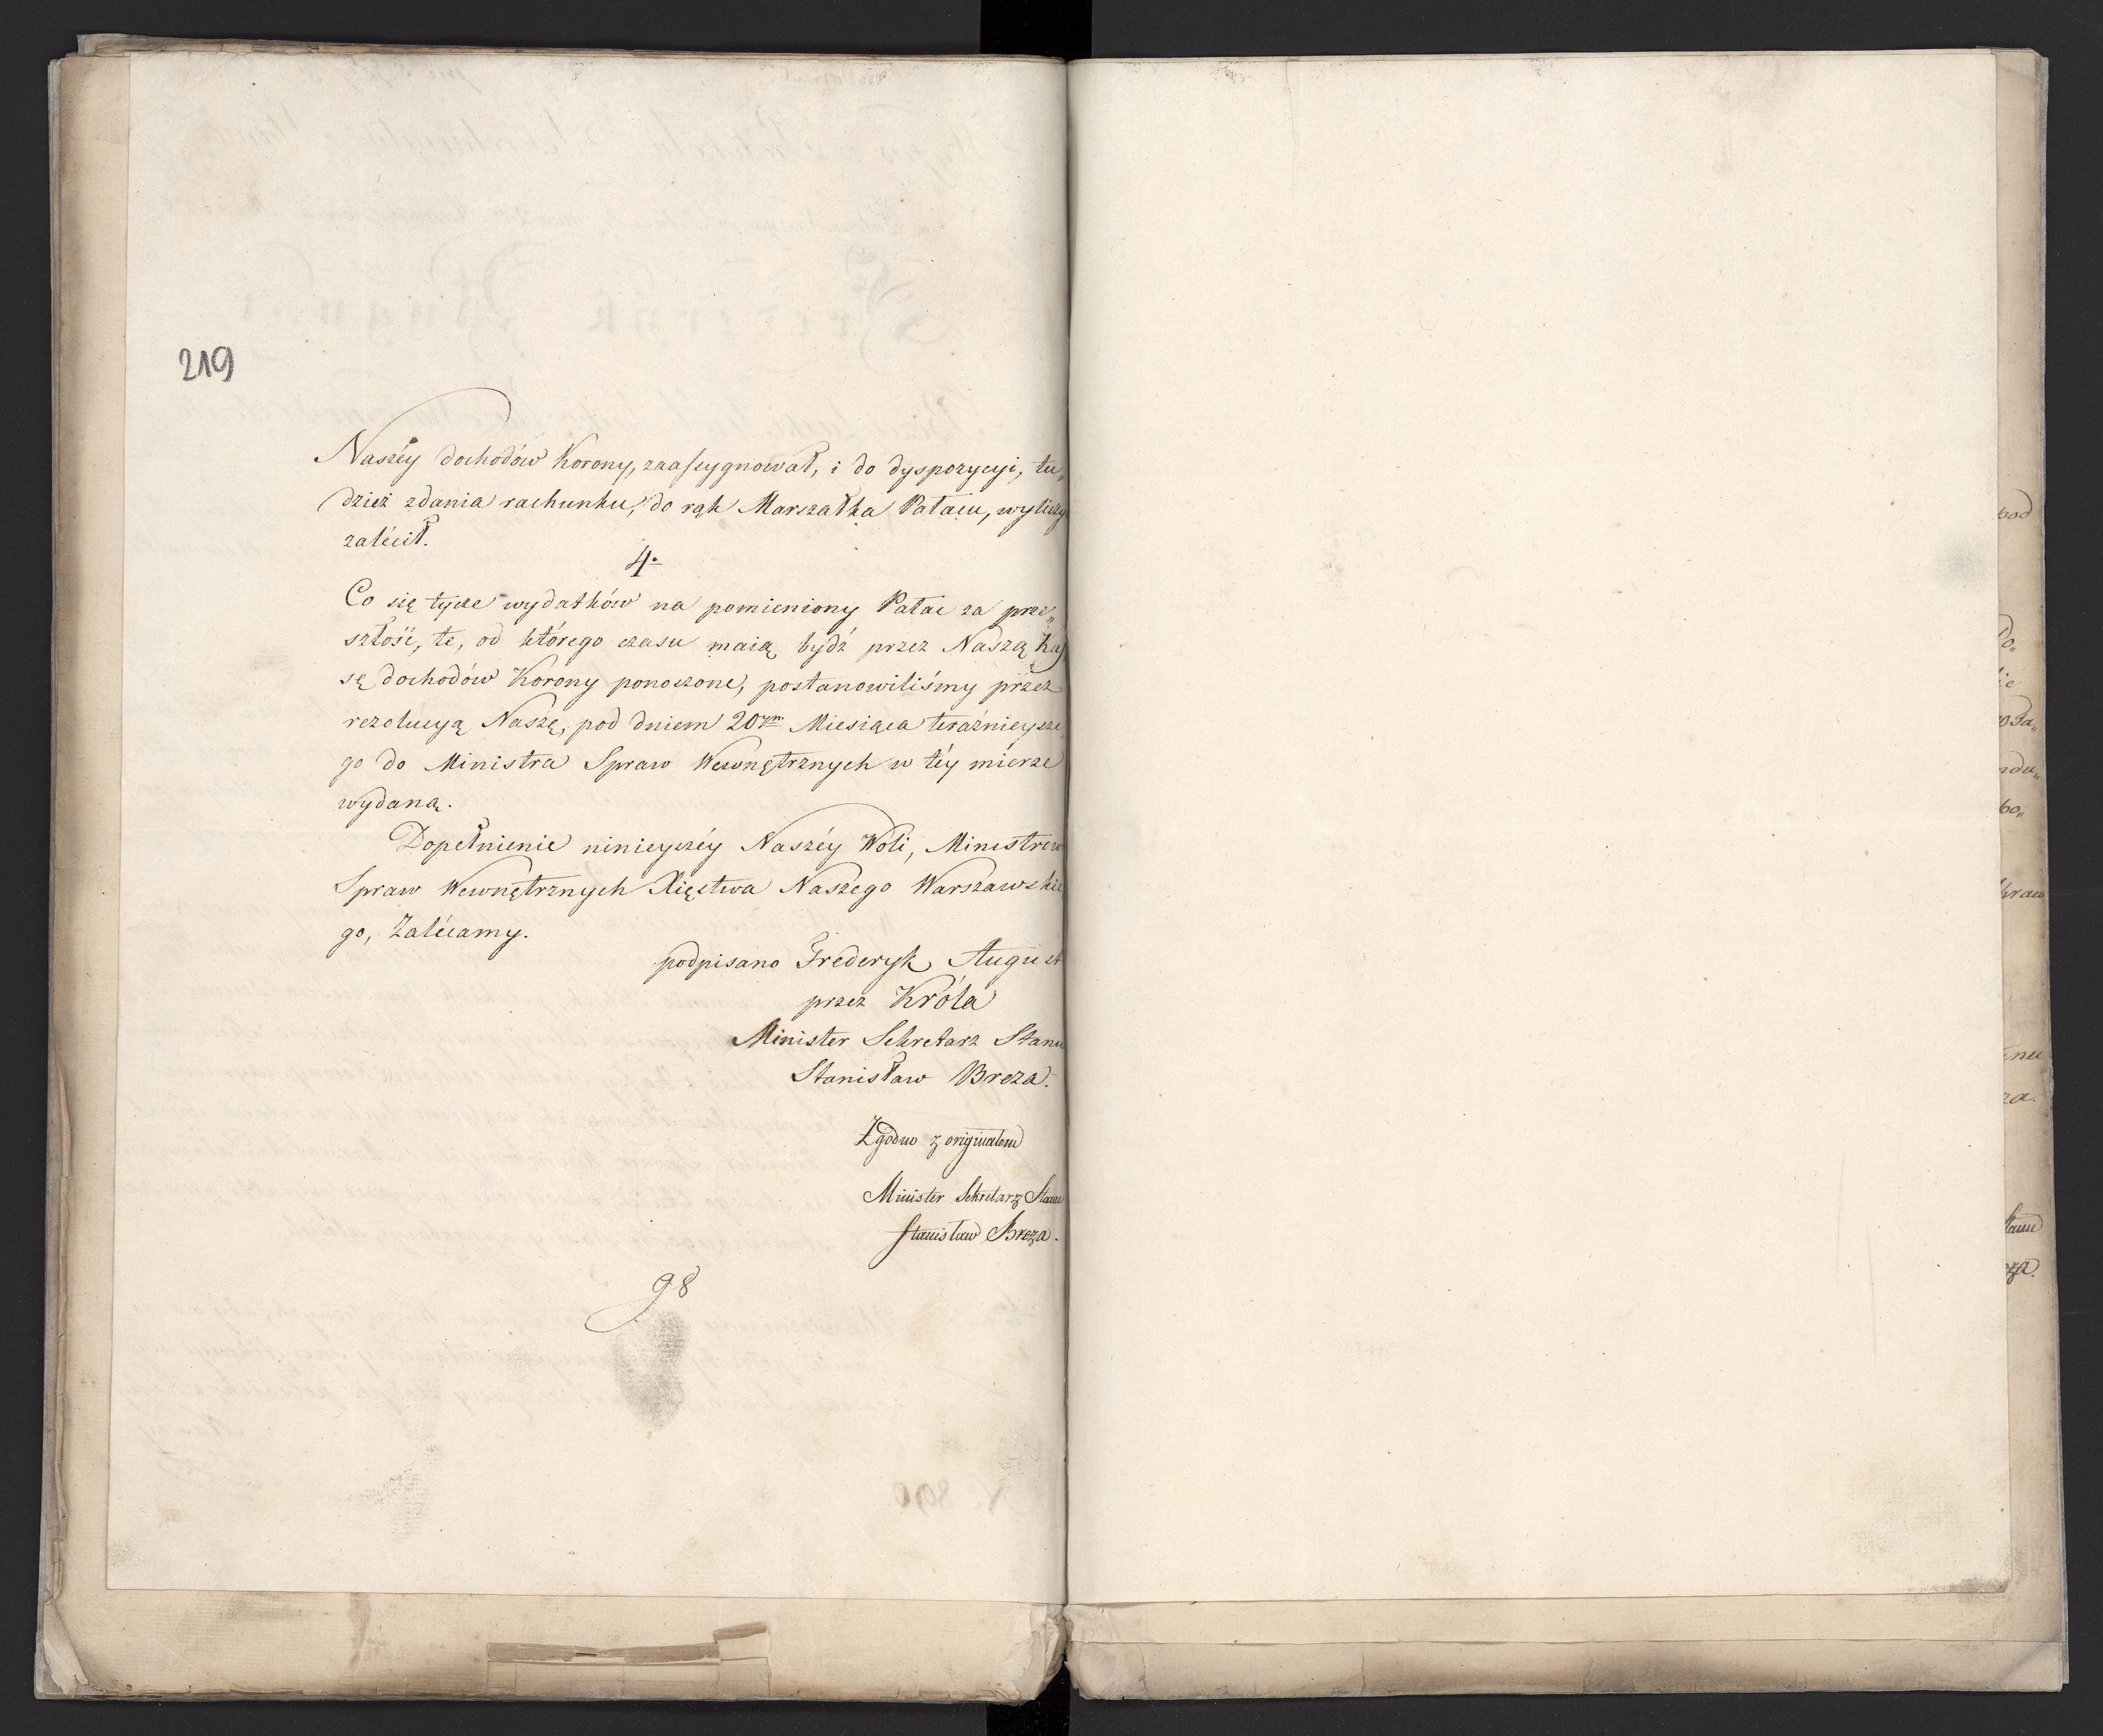 219
Naszéy dochodów Korony, zaassygnował, i do dyspozycyi, tu„
dzież zdania rachunku, do rąk Marszałka Pałacu, wyliczy
zalécił.
4.
Co się tycze wydatków na pomieniony Pałac za prze„
szłość, te, od którego czasu maią bydź przez Naszą Kas
sę dochodów Korony ponoszone, postanowiliśmy przez
rezolucyą Naszę, pod dniem 20ym Miesiąca teraźnieysze
go do Ministra Spraw Wewnętrznych w téy mierze
wydaną.
Dopełnienie ninieyszéy Naszéy Woli, Ministrow
Spraw Wewnętrznych Xięstwa Naszego Warszawskie
go, Zalécamy.
podpisano Frederyk August
przez Króla
Minister Sekretarz Stanu
Stanisław Breza.
Zgodno z originałem
Minister Sekretarz Stanu
Stanisław Breza.
98